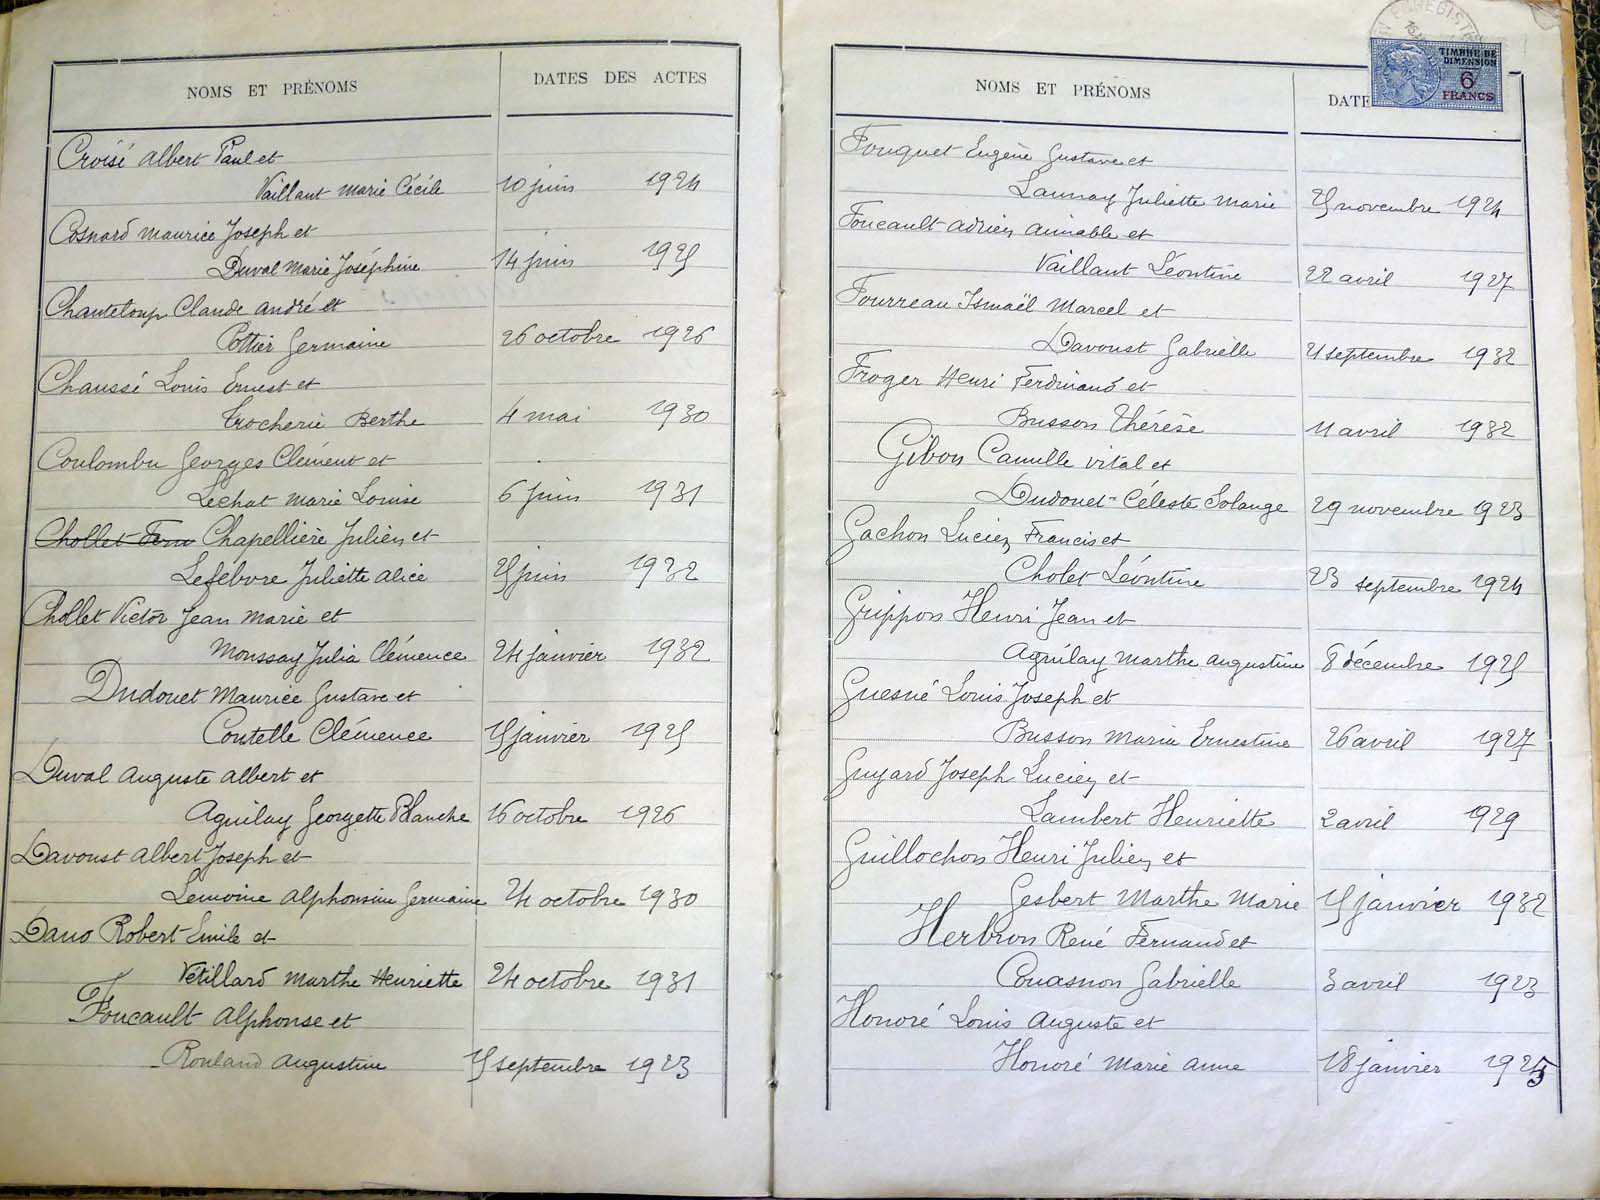 NOMS ET PRÉNOMS DATES DES ACTES
Croisé Albert Paul et
Vaillant Marie Cécile 10 juin 1924
Cosnard Maurice Joseph et
Duval Marie Joséphine 14 juin 1925
Chanteloup Claude André et
Pottier Germaine 26 octobre 1926
Chaussé Louis Ernest et
Trocherie Berthe 4 mai 1930
Coulombu Georges Clément et
Lechat Marie Louise 6 juin 1931
Chollet Chapellière Julien et
Lefébvre Juliette Alice 25 juin 1932
Chollet Victor Jean Marie et
Moussay Julia Clémence 24 janvier 1932
Dudouet Maurice Gustave et
Coutelle Clémence 15 janvier 1925
Duval Auguste Albert et
Aguilay Georgette Blanche 16 octobre 1926
Davoust Albert Joseph et
Lemoine Alphonsine Germaine 24 octobre 1930
Dano Robert Emile et
Vétillard Marthe Henriette 24 octobre 1931
Foucault Alphonse et
Rouland Augustine 15 septembre 1923
TIMBRE DE
DIMENSION
6
FRANCS
NOMS ET PRÉNOMS DATE
Fouquet Eugène Gustave et
Launay Juliette Marie 25 novembre 1924
Foucault Adrien Aimable et
Vaillant Léontine 22 avril 1927
Fourreau Ismaël Marcel et
Davoust Gabrielle 21 septembre 1932
Froger Henri Ferdinand et
Busson Thérèse 11 avril 1932
Gibon Camille Vital et
Dudouet Céleste Solange 29 novembre 1923
Gachon Lucien Francis et
Cholet Léontine 23 septembre 1924
Grippon Henri Jean et
Aguilay Marthe Augustine 8 décembre 1925
Guesné Louis Joseph et
Busson Maria Ernestine 26 avril 1927
Guyard Joseph Lucien et
Lambert Henriette 2 avril 1929
Guillochon Henri Julien et
Gesbert Marthe Marie 15 janvier 1932
Herbron René Fernand et
Couasnon Gabrielle 3 avril 1923
Honoré Louis Auguste et
Honoré Marie Anne 18 janvier 1925